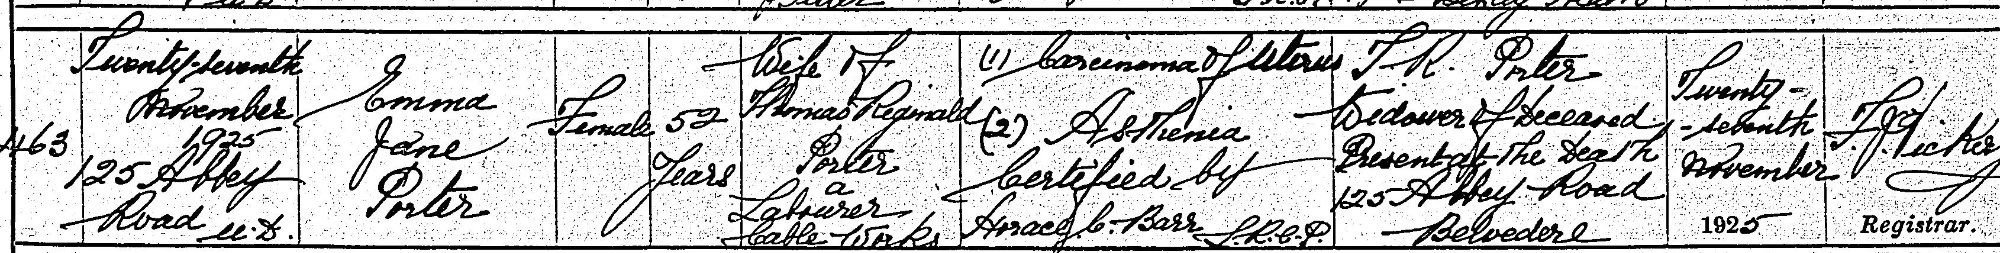 463
Twenty-seventh
November
1925
125 Abbey
Road U.D.
Emma
Jane
Porter
Female
52
Years
Wife of
Thomas Reginald
Porter
a
Labourer
Cable Works
(1) Carcinoma of Uterus
(2) Asthenia
Certified by
Horace C. Barr L.R.C.P.
T. R. Porter
Widower of deceased
Present at the death
125 Abbey Road
Belvedere
Twenty-
-seventh
November
1925
Registrar.